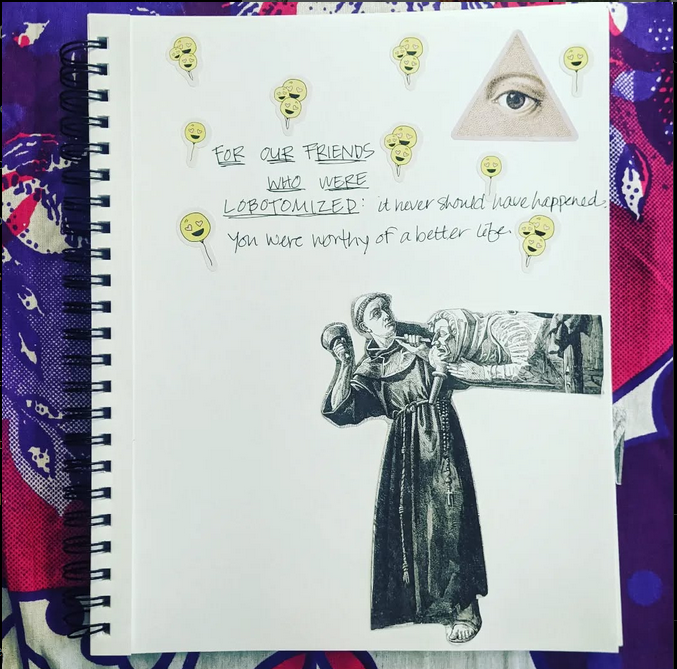 FOR OUR FRIENDS
WHO WERE
LOBOTOMIZED: it never should have happened.
You were worthy of a better life.